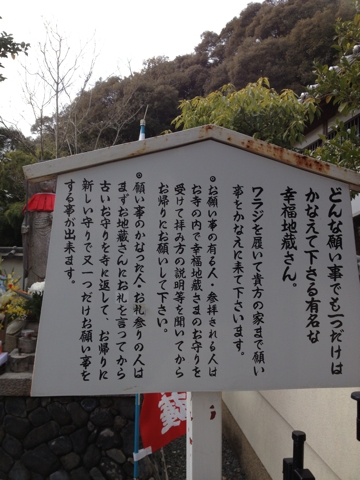 どんな願い事でも一つだけは
かなえて下さる有名な
幸福地蔵さん。
ワラジを履いて貴方の家まで願い
事をかなえに来て下さいます。
◎お願い事の有る人・参拝される人は
お寺の内で幸福地蔵さまのお守りを
受けて拝み方の説明等を聞いてから
お帰りにお願いして下さい。
◎願い事のかなった人・お礼参りの人は
まずお地蔵さんにお礼を言ってから
古いお守りを寺に返して、お帰りに
新しい守りで又一つだけお願い事を
する事が出来ます。